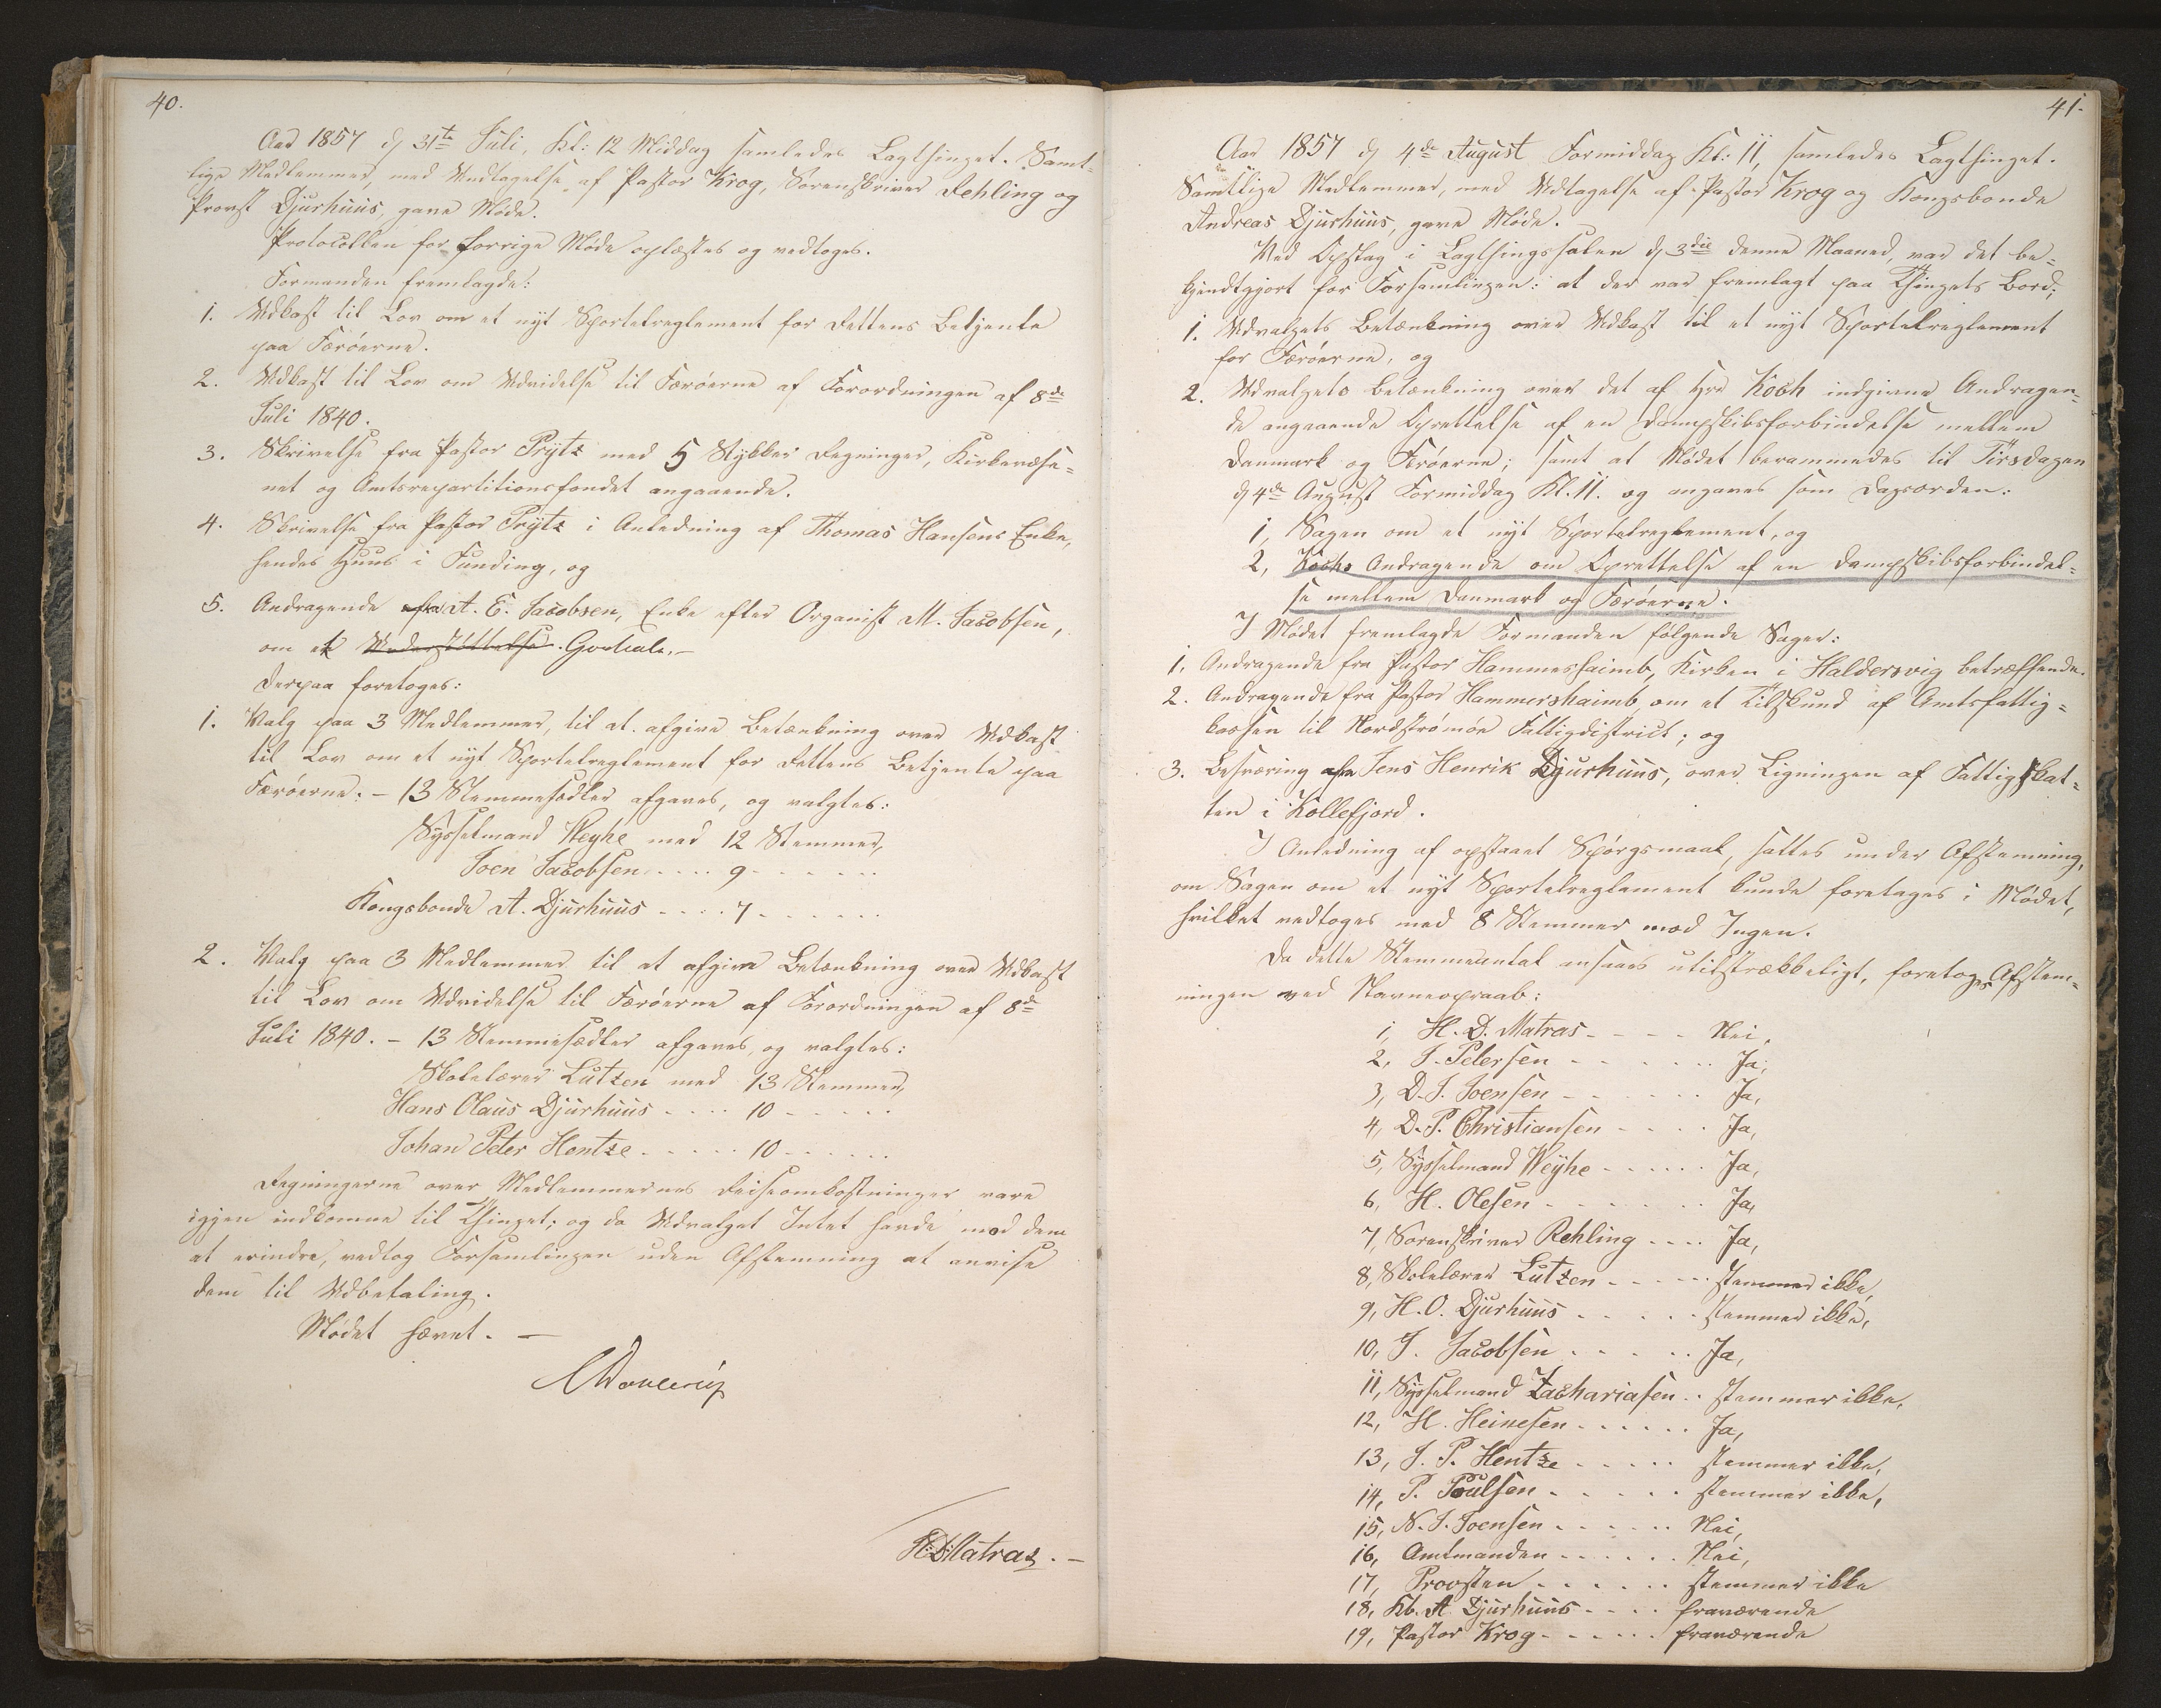 40.
Aar 1857 d 31te Juli, Kl: 12 Middag samledes Lagthinget. Samt-
lige Medlemmer, med Undtagelse af Pastor Krog, Sorenskriver Rehling og
Provst Djurhuus, gave Møde.
Protocollen for forrige Møde oplæstes og vedtoges.
Formanden fremlagde:
1. Udkast til Lov om et nyt Sportelreglement for Rettens Betjente
paa Færøerne.
2. Udkast til Lov om Udvidelse til Færøerne af Forordningen af 8de
Juli 1840.
3. Skrivelse fra Pastor Prytz med 5 Stykker Regninger, Kirkevæse-
net og Amtsrepartitionsfondet angaaende.
4. Skrivelse fra Pastor Prytz i Anledning af Thomas Hansens Enke,
hendes Huus i Funding, og
5. Andragende fra A. E. Jacobsen, Enke efter Organist M. Jacobsen,
om et Understøttelse.
Derpaa foretoges:
1. Valg paa 3 Medlemmer, til at afgive Betænkning over Udkast
til Lov om et nyt Sportelreglement for Rettens Betjente paa
Færøerne: – 13 Stemmesedler afgaves, og valgtes:
Sysselmand Weyhe med 12 Stemmer,
Joen Jacobsen .... 9 ......
Kongsbonde A. Djurhuus .... 7 ......
2. Valg paa 3 Medlemmer til at afgive Betænkning over Udkast
til Lov om Udvidelse til Færøerne af Forordningen af 8de
Juli 1840. – 13 Stemmesedler afgaves, og valgtes:
Skolelærer Lützen med 13 Stemmer,
Hans Olaus Djurhuus .... 10 .....
Johan Peter Hentze ..... 10 ......
Regningerne over Medlemmernes Reiseomkostninger vare
igjen indkomne til Thinget; og da Udvalget Intet havde mod dem
at erindre, vedtog Forsamlingen uden Afstemning at anvise
dem til Udbetaling.
Mødet hævet. –
CDahlerup
HDMatras. –
41.
Aar 1857 d 4de August Formiddag Kl: 11, samledes Lagthinget.
Samtlige Medlemmer, med Udtagelse af Pastor Krog og Kongsbonde
Andreas Djurhuus, gave Møde.
Ved Opslag i Lagthingssalen d 3die denne Maaned, var det be-
kjendtgjort for Forsamlingen: at der var fremlagt paa Thingets Bord:
1. Udvalgets Betænkning over Udkast til et nyt Sportelreglement
for Færøerne, og
2. Udvalgets Betænkning over det af Hre Koch indgivne Andragen-
de angaaende Oprettelse af en Dampskibsforbindelse mellem
Danmark og Færøerne; samt at Mødet berammedes til Tirsdagen
d 4de August Formiddag Kl. 11. og angaves som Dagsorden:
1, Sagen om et nyt Sportelreglement, og
2, Kochs Andragende om Oprettelse af en Dampskibsforbindel-
se mellem Danmark og Færøerne.
I Mødet fremlagde Formanden følgende Sager:
1. Andragende fra Pastor Hammershaimb, Kirken i Haldersvig betræffende.
2. Andragende fra Pastor Hammershaimb om et Tilskud af Amtsfattig-
kassen til Nordstrømøe Fattigdistrict; og
3. Besværing fra Jens Henrik Djurhuus, over Ligningen af Fattigskat-
ten i Kollefjord.
I Anledning af opstaaet Spørgsmaal, sattes under Afstemning,
om Sagen om et nyt Sportelreglement kunde foretages i Mødet,
hvilket vedtoges med 8 Stemmer mod Ingen.
Da dette Stemmeantal ansaaes utilstrækkeligt, foretoges Afstem-
ningen ved Navneopraab:
1, H. D. Matras - - - - Nei,
2, J. Petersen - - - - - - Ja,
3, D. J. Joensen - - - - - - Ja,
4, D. P. Christiansen - - - - Ja,
5, Sysselmand Weyhe - - - - - - Ja,
6, H. Olesen - - - - - - - Ja,
7, Sorenskriver Rehling .... Ja,
8, Skolelærer Lützen - - - - - stemmer ikke,
9, H. O. Djurhuus - - - - - stemmer ikke,
10, J. Jacobsen - - - - - Ja,
11, Sysselmand Zachariasen .. stemmer ikke,
12, H. Heinesen - - - - - - Ja,
13, J. P. Hentze - - - - - stemmer ikke,
14, P. Poulsen - - - - - stemmer ikke,
15, N. J. Joensen - - - - - - Nei,
16, Amtmanden - - - - - - Nei,
17, Provsten - - - - - - stemmer ikke
18, Kb. A Djurhuus - - - - fraværende
19, Pastor Krog - - - - - - fraværende